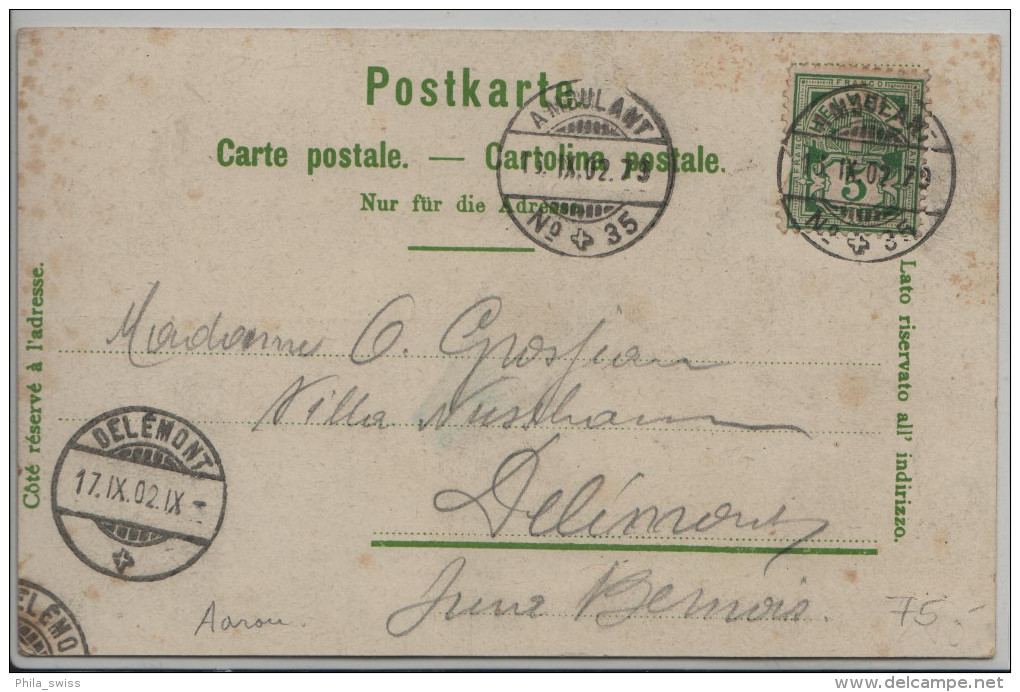 Postkarte
Carte postale. — Cartolina postale.
Nur für die Adresse
AMBULANT
IX.02.
No 35
FRANCO
AMBULANT
IX.02.
5
No 35
Côté réservé à l'adresse.
Lato riservato all' indirizzo.
Madame O. Grosjean
Villa
Delémont
Jura Bernois.
DELÉMONT
17.IX.02.IX
DELÉMO
Aarau.
75.-
Phila_swiss
www.delcampe.net